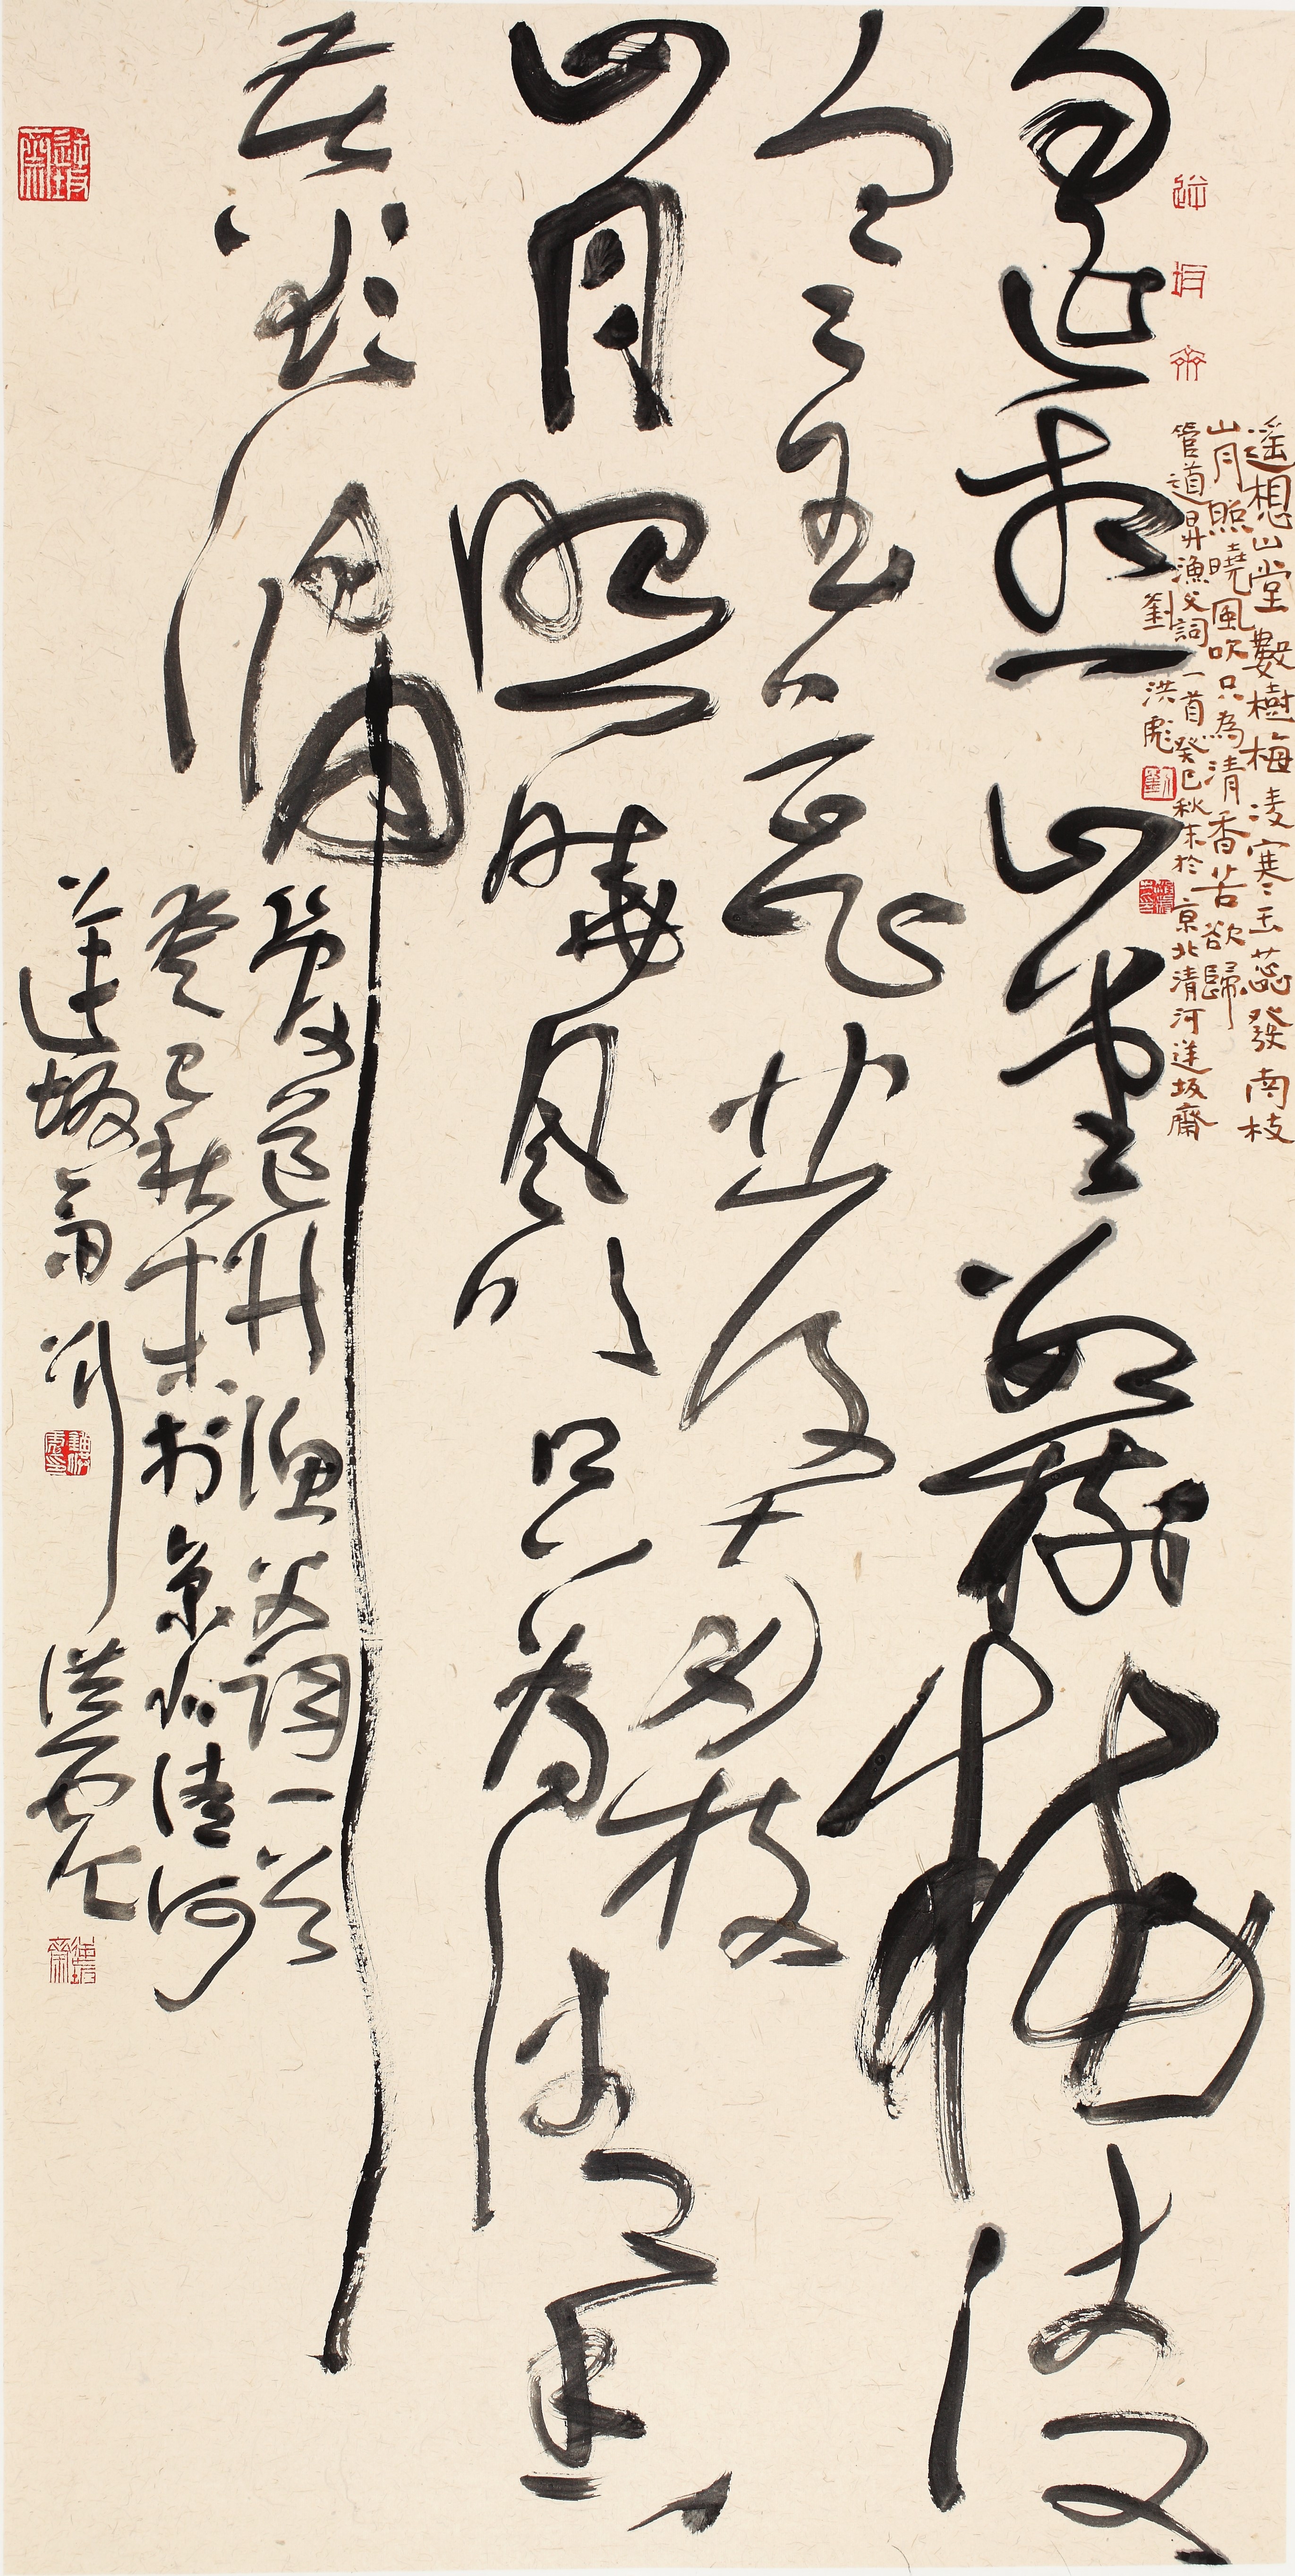 遥想山堂數樹梅凌寒玉蕊發南枝
山月照曉風吹只為清香苦欲歸
管道昇漁父詞一首癸巳秋末於京北清河逆坂齋
劉洪彪
遥想山堂數樹梅凌
寒玉蕊發南枝
山月照曉風吹只為清香
苦欲歸
管道昇漁父詞一首
癸巳秋末於京北清河
逆坂齋劉洪彪